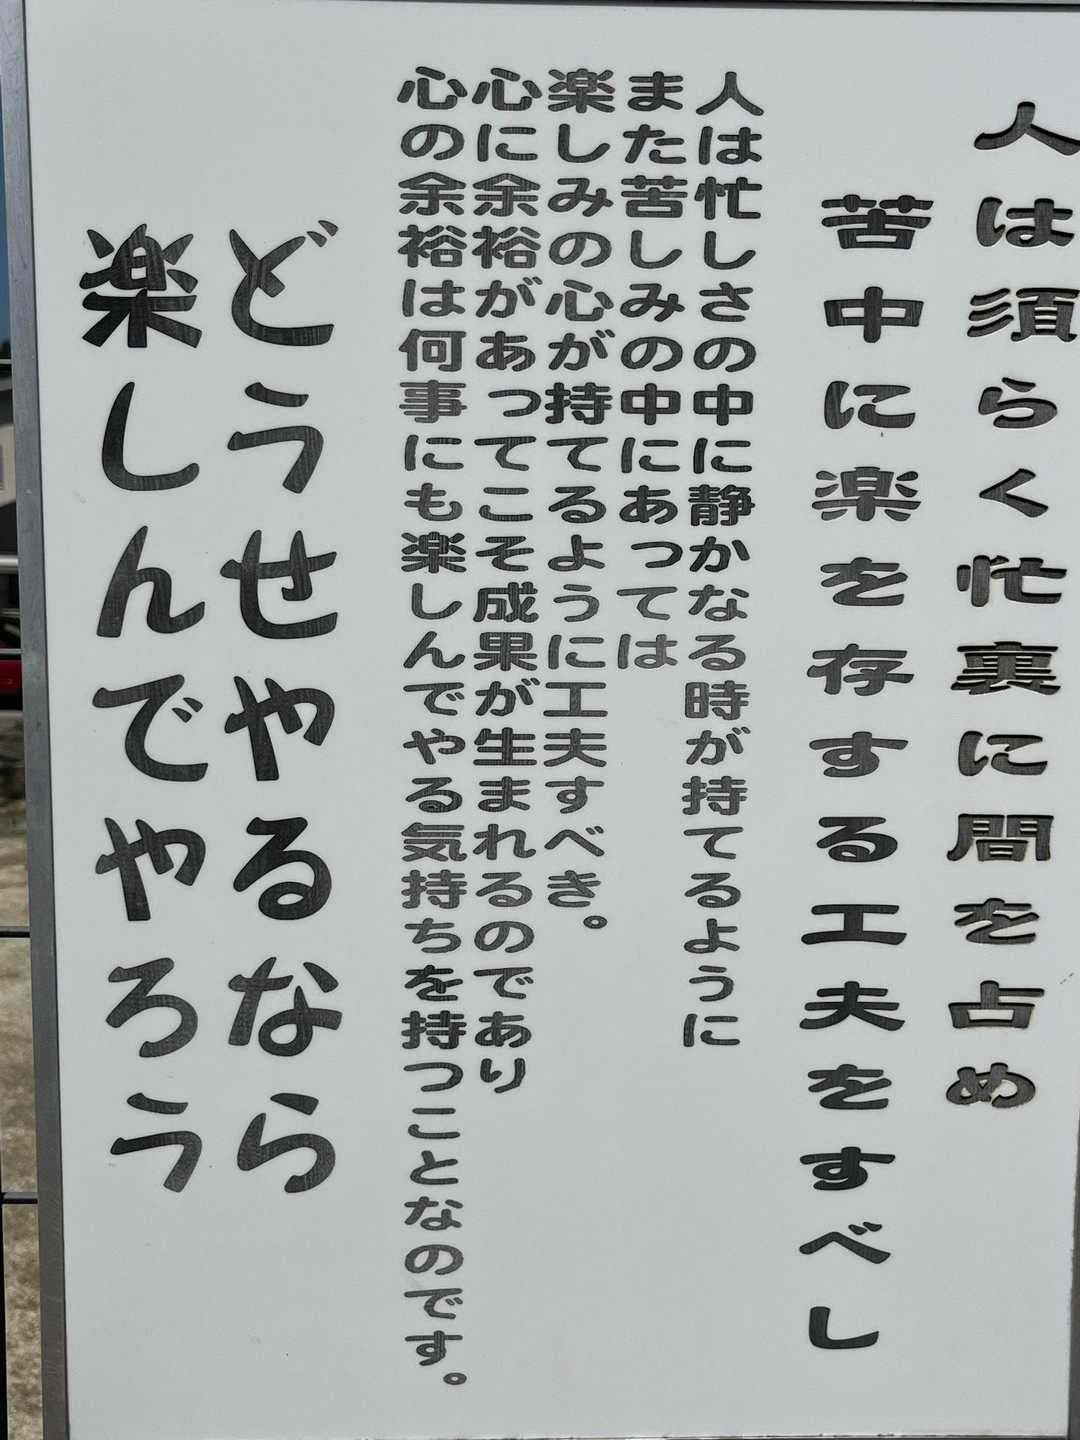 人は須らく忙裏に間を占め
苦中に楽を存する工夫をすべし
人は忙しさの中に静かなる時が持てるように
また苦しみの中にあっては
楽しみの心が持てるように工夫すべき。
心に余裕があってこそ成果が生まれるのであり
心の余裕は何事にも楽しんでやる気持ちを持つことなのです。
どうせやるなら
楽しんでやろう